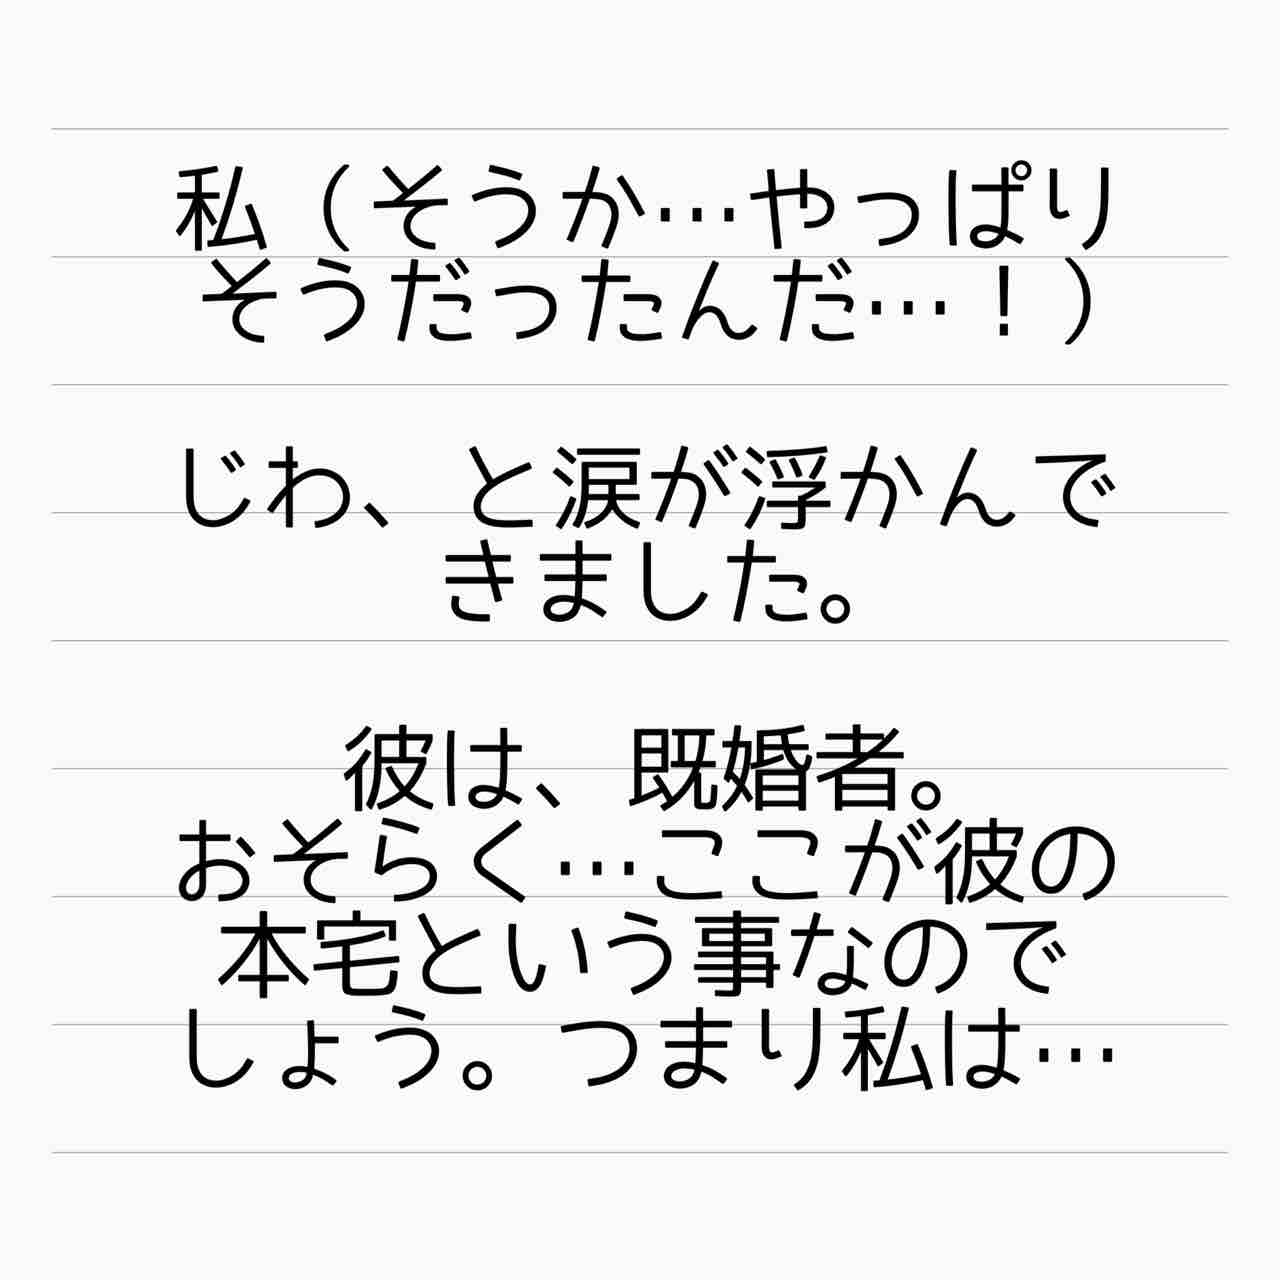 私（そうか…やっぱり
そうだったんだ…！）
じわ、と涙が浮かんで
きました。
彼は、既婚者。
おそらく…ここが彼の
本宅という事なので
しょう。つまり私は…